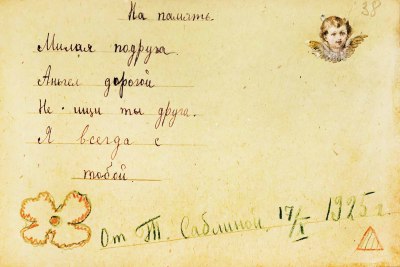 38
На память.
Милая подруга.
Ангел дорогой
Не ищи ты друга.
Я всегда с
тобой.
От Т. Саблиной 17/X 1925 г.